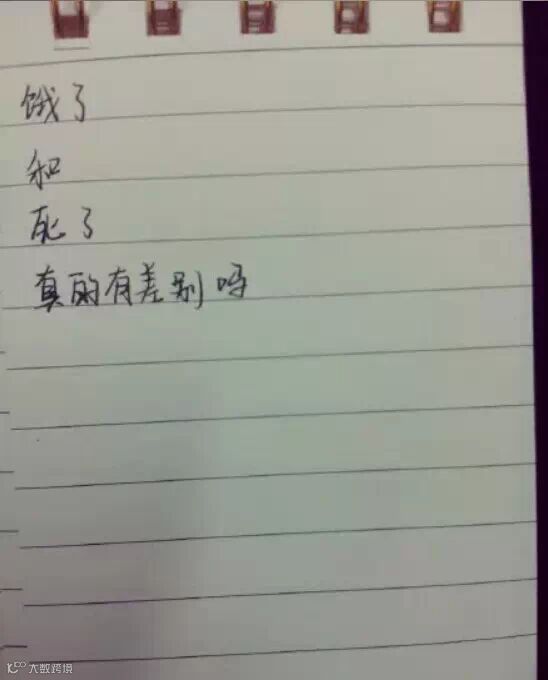 饿了
和
死了
真的有差别吗
大数跨境